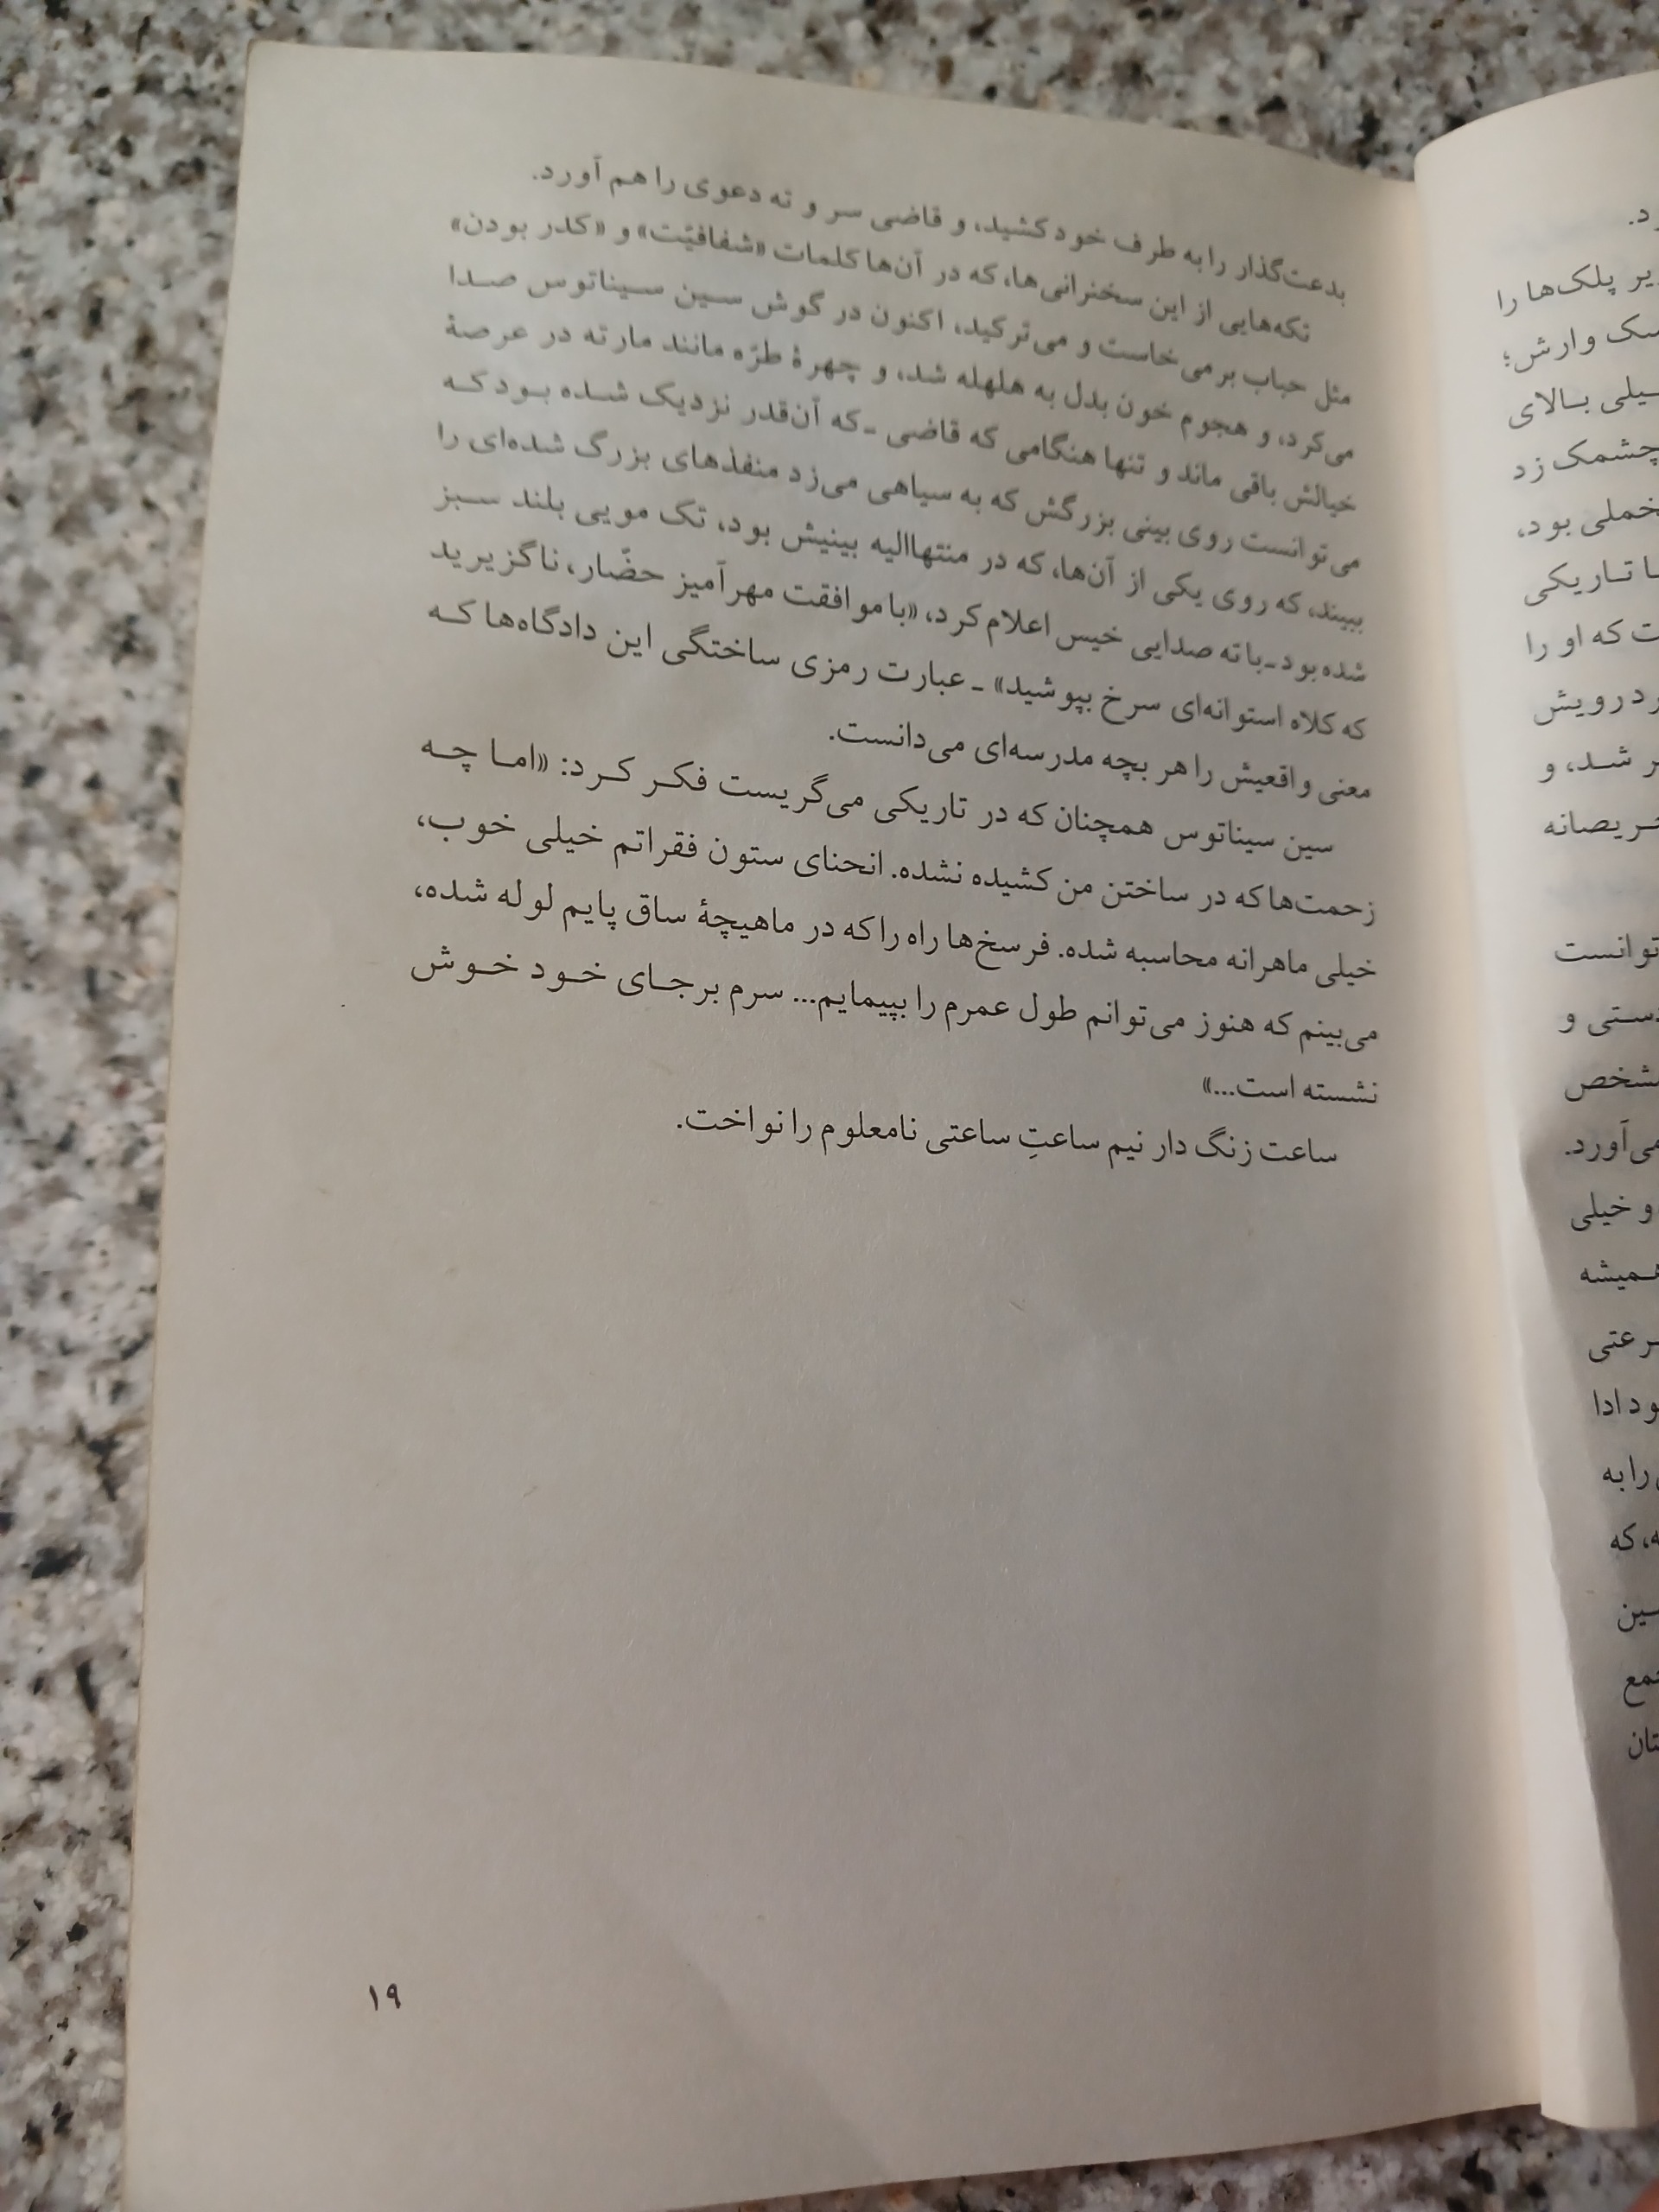 بدعت‌گذار را به طرف خود کشید، و قاضی سر و ته دعوی را هم آورد.
تکه‌هایی از این سخنرانی‌ها، که در آن‌ها کلمات «شفافیّت» و «کدر بودن»
مثل حباب برمی‌خاست و می‌ترکید، اکنون در گوش سین سیناتوس صدا
می‌کرد، و هجوم خون بدل به هلهله شد، و چهرهٔ طرّه مانند مارته در عرصهٔ
خیالش باقی ماند و تنها هنگامی که قاضی ـ که آن‌قدر نزدیک شده بود که
می‌توانست روی بینی بزرگش که به سیاهی می‌زد منفذهای بزرگ شده‌ای را
ببیند، که روی یکی از آن‌ها، که در منتهاالیه بینیش بود، تک مویی بلند سبز
شده بود ـ با ته صدایی خیس اعلام کرد، «با موافقت مهرآمیز حضّار، ناگزیرید
که کلاه استوانه‌ای سرخ بپوشید» ـ عبارت رمزی ساختگی این دادگاه‌ها که
معنی واقعیش را هر بچه مدرسه‌ای می‌دانست.
سین سیناتوس همچنان که در تاریکی می‌گریست فکر کرد: «اما چه
زحمت‌ها که در ساختن من کشیده نشده. انحنای ستون فقراتم خیلی خوب،
خیلی ماهرانه محاسبه شده. فرسخ‌ها راه را که در ماهیچهٔ ساق پایم لوله شده،
می‌بینم که هنوز می‌توانم طول عمرم را بپیمایم... سرم برجای خود خوش
نشسته است...»
ساعت زنگ دار نیم ساعتِ ساعتی نامعلوم را نواخت.
۱۹
یر پلک‌ها را
وارش؛
بالای
چشمک زد
بود،
تاریکی
که او را
شد، و
توانست
و
و خیلی
ادا
را به
که